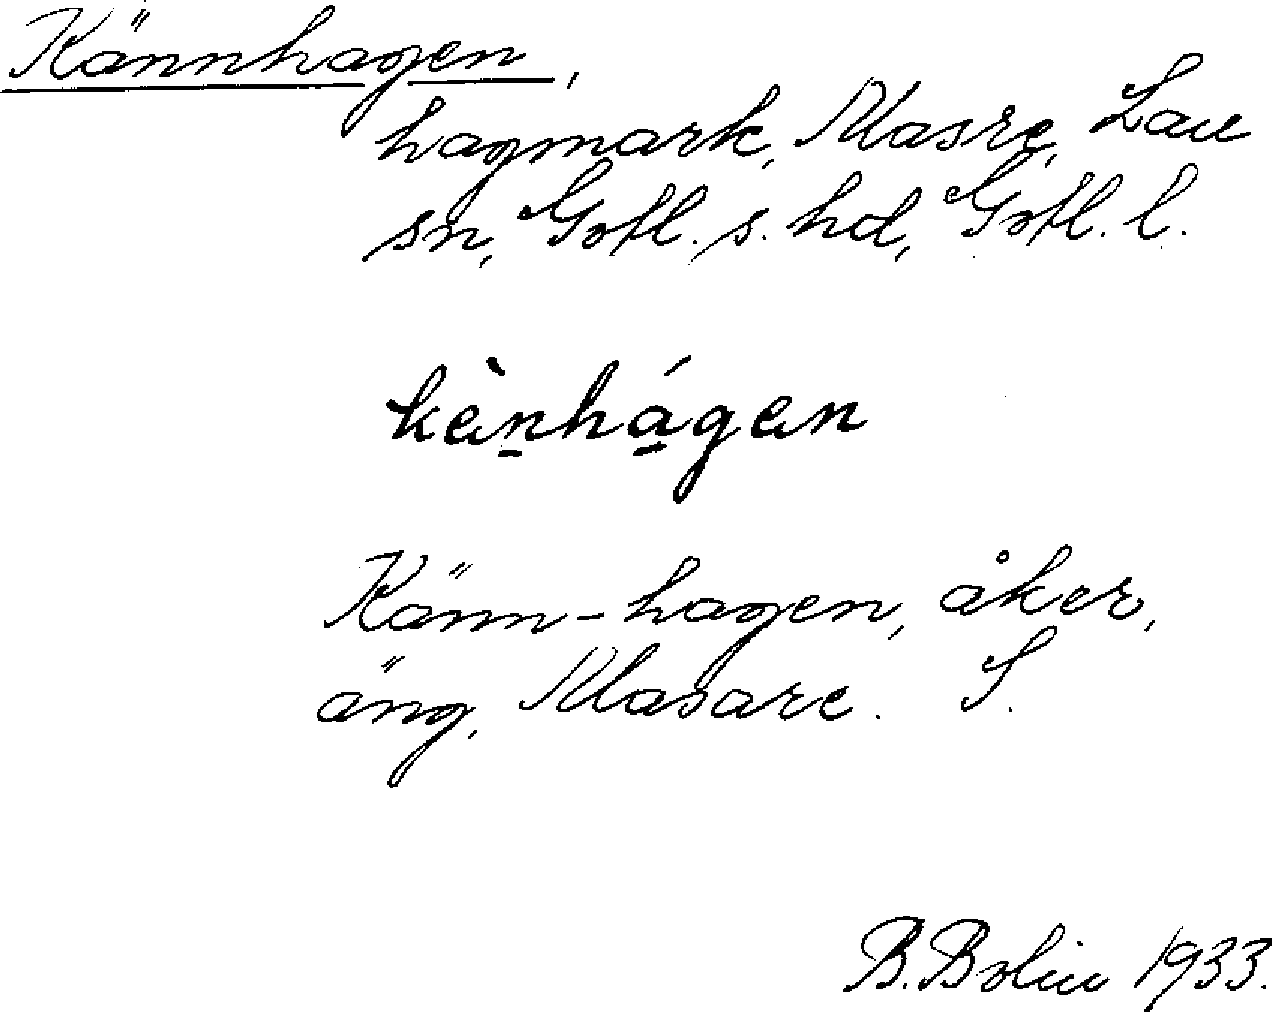 Kännhagen,
hagmark, Klasre, Lau
sn, Gotl. s. hd, Gotl. l.
kènhágen
Känn-hagen, åker,
äng, Klasare. S.
B. Bolin 1933.